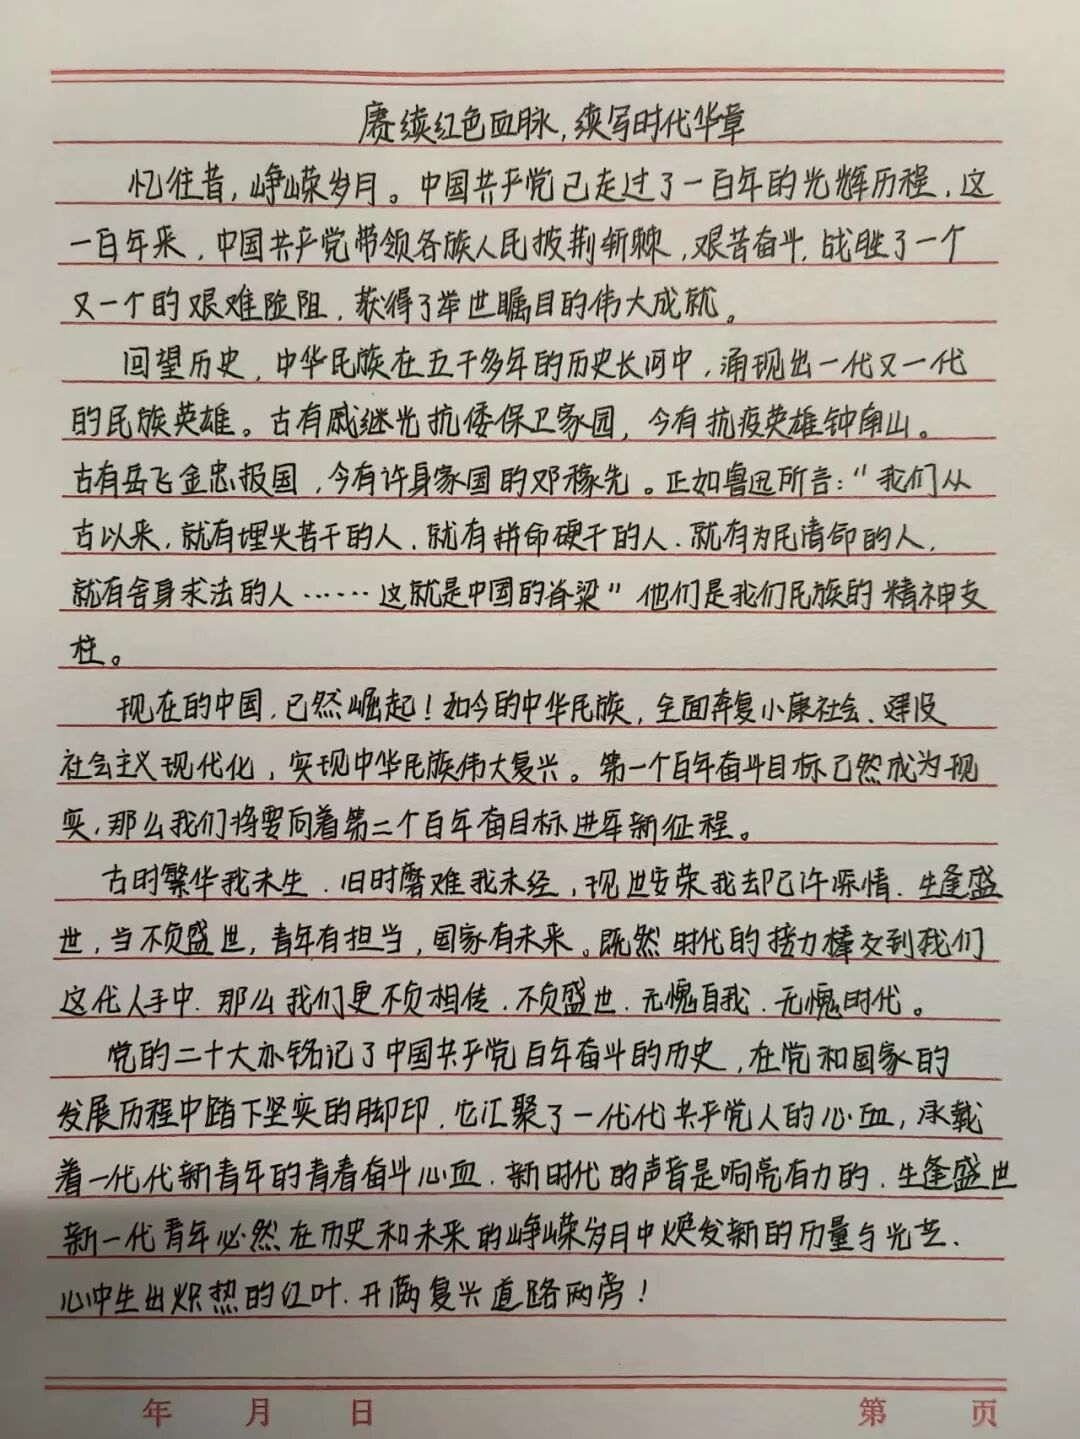 赓续红色血脉，续写时代华章
忆往昔，峥嵘岁月。中国共产党已走过了一百年的光辉历程，这
一百年来，中国共产党带领各族人民披荆斩棘，艰苦奋斗，战胜了一个
又一个的艰难险阻，获得了举世瞩目的伟大成就。
回望历史，中华民族在五千多年的历史长河中，涌现出一代又一代
的民族英雄。古有戚继光抗倭保卫家园，今有抗疫英雄钟南山。
古有岳飞金忠报国，今有许身家国的邓稼先。正如鲁迅所言：“我们从
古以来，就有埋头苦干的人，就有拼命硬干的人，就有为民请命的人，
就有舍身求法的人……这就是中国的脊梁”他们是我们民族的精神支
柱。
现在的中国，已然崛起！如今的中华民族，全面奔复小康社会、建设
社会主义现代化，实现中华民族伟大复兴。第一个百年奋斗目标已然成为现
实，那么我们将要向着第二个百年奋目标进军新征程。
古时繁华我未生，旧时磨难我未经，现世安荣我却已许深情，生逢盛
世，当不负盛世，青年有担当，国家有未来。既然时代的接力棒交到我们
这代人手中，那么我们更不负相传，不负盛世，无愧自我，无愧时代。
党的二十大亦铭记了中国共产党百年奋斗的历史，在党和国家的
发展历程中踏下坚实的脚印，它汇聚了一代代共产党人的心血，承载
着一代代新青年的青春奋斗心血，新时代的声音是响亮有力的，生逢盛世
新一代青年必然在历史和未来的峥嵘岁月中焕发新的历量与光芒，
心中生出炽热的红叶，开满复兴道路两旁！
年 月 日 第 页